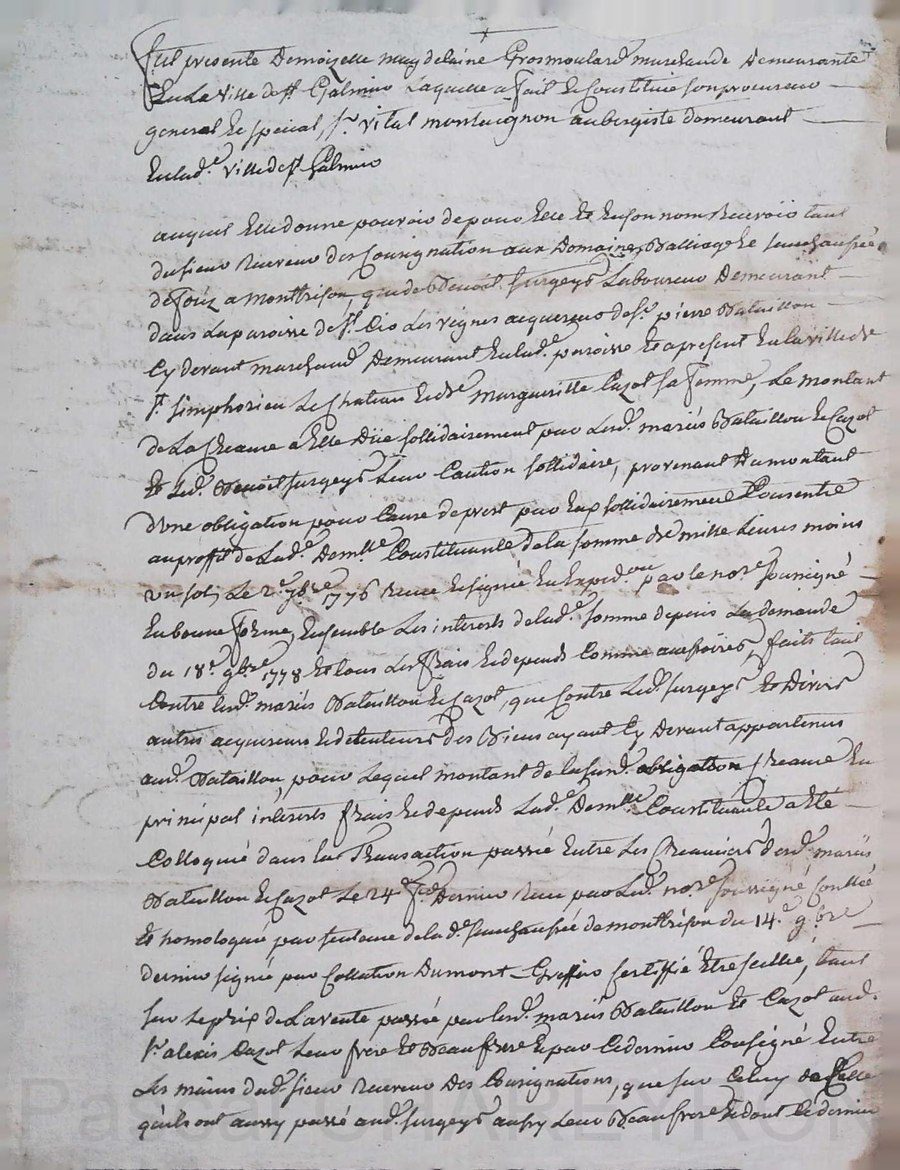 fut presente Demoizelle magdelaine Grosmoulard marchande Demeurante
En La Ville de st Galmier Laquelle a fait et Constitué son procureur
general et special, sr. vital montaignon aubergiste demeurant
En lade. ville de st Galmier
auquel Elle donne pouvoir de pour Elle et En son nom Recevoir tant
du sieur Receveur des Consignation aux Domaines, Balliage et senechaussée
de forez a montbrison, que de Benoit surgeys Laboureur Demeurant
dans La paroisse de st. Cir Les vignes acquereur de sr. pierre Bataillon
Cy devant marchand Demeurant En lade. paroisse Et apresent En la ville de
st. simphorien Le Chateau Et de Margueritte Cazot sa femme, Le montant
de La Creance a Elle Düe sollidairement par Lesd. mariés Bataillon et Cazot
Et Led. Benoit surgeys Leur Caution sollidaire, provenant Du montant
D'une obligation pour Cause de prest par Eux sollidairement Consentie
au profit de Lade. Demlle. Constituante de la somme de mille Livres moins
un sol, Le 2e. 7bre. 1776 Recue et signée En Exped.on par le nore. soussigné
En bonne forme, Ensemble Les interets de lade. somme depuis La demande
du 18e. 9bre. 1778 Et tous Les frais et depends Comme accessoires, faits tant
Contre lesd. mariés Bataillon et Cazot, que Contre Led. surgeys Et Divers
autres acquereurs et detenteurs des Biens ayant Cy Devant appartenus
aud. Bataillon, pour Lequel montant de la susd. obligation Creance En
principal interets frais et depends Lade. Demlle Constituante a Eté
Colloquée dans la Transaction passée Entre Les Creanciers desd. mariés
Bataillon et Cazot Le 24e Dernier Recu par Led. nore. soussigné Conllé
Et homologué par sentence de lade. senechaussée de montbrison du 14e. 9bre
dernier signée par Collation Dumont Greffier Certiffié Et scellée, tant
sur Le prix de La vente passée par lesd. mariés Bataillon Et Cazot aud.
sr. alexis Cazot Leur frere Et Beaufrere et par Ce dernier Consigné Entre
Les mains dud. sieur Receveur Des Consignations, que sur Celuy de Celle
qu'ils ont aussy passé aud. surgeys aussy Leur Beaufrere et dont Ce dernier